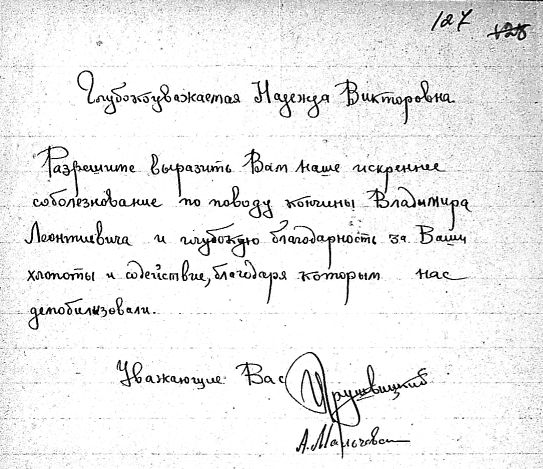 127 128
Глубокоуважаемая Надежда Викторовна
Разрешите выразить Вам наше искреннее
соболезнование по поводу кончины Владимира
Леонтиевича и глубокую благодарность за Ваши
хлопоты и содействие, благодаря которым нас
демобилизовали.
Уважающие Вас
А.